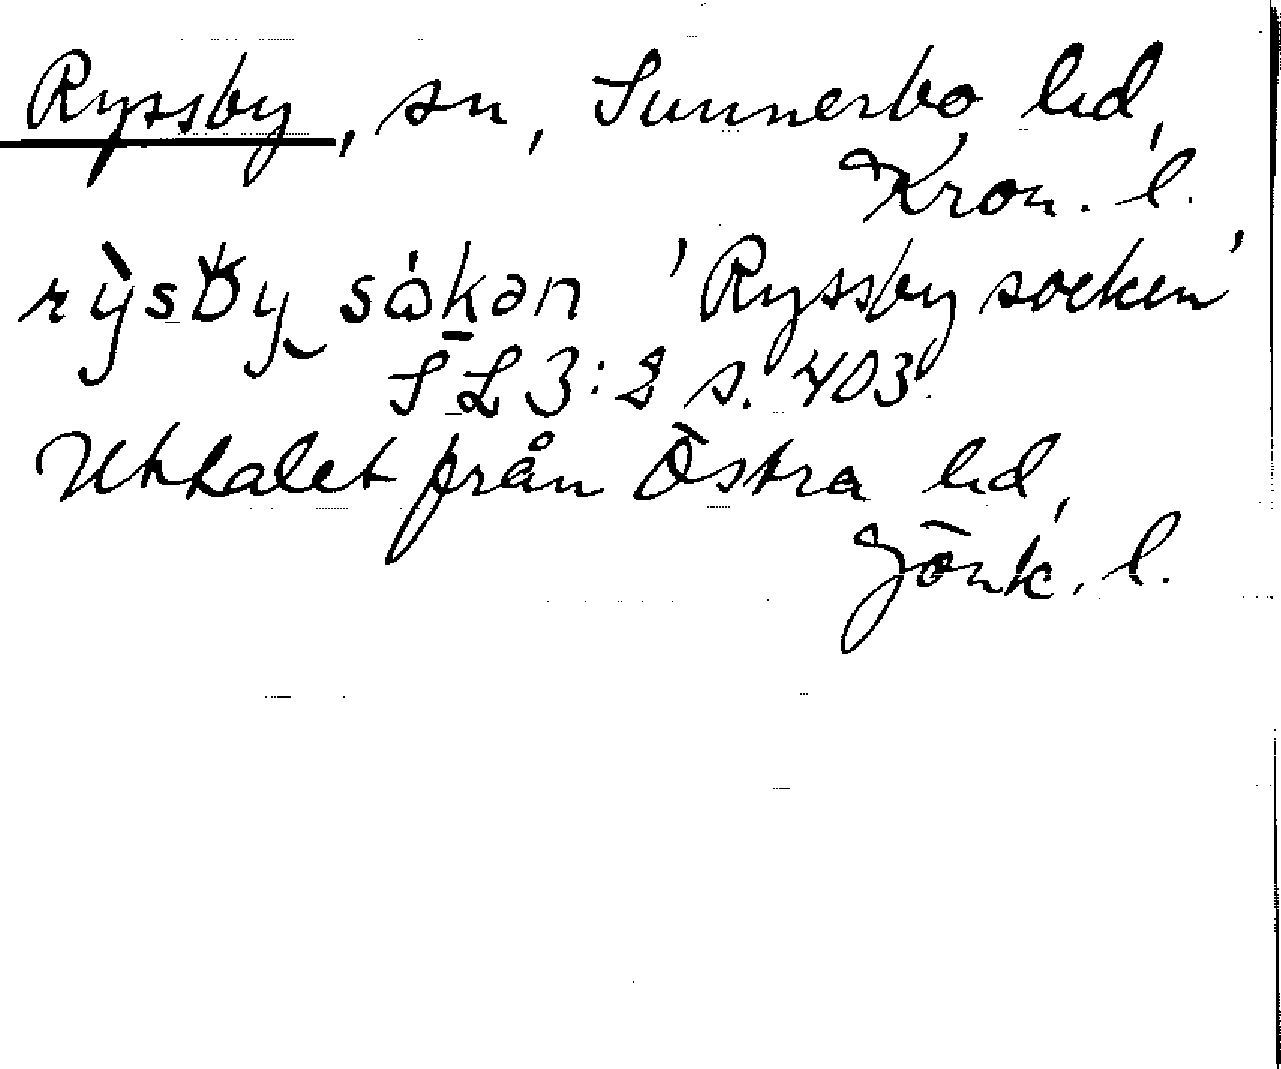 Ryssby, sn, Sunnerbo hd,
Kron. l.
rỳsby sɷ́kən 'Ryssby socken'
SL 3:2 s. 403.
Uttalet från Östra hd,
Jönk. l.